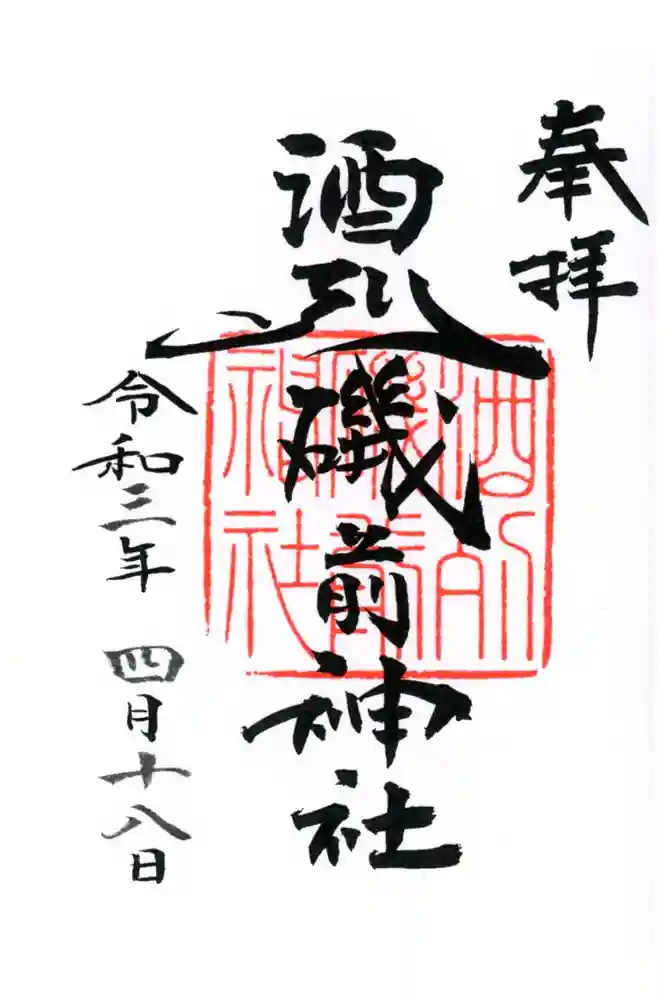 奉拝
酒列磯前神社
酒列磯前神社
令和三年 四月十八日